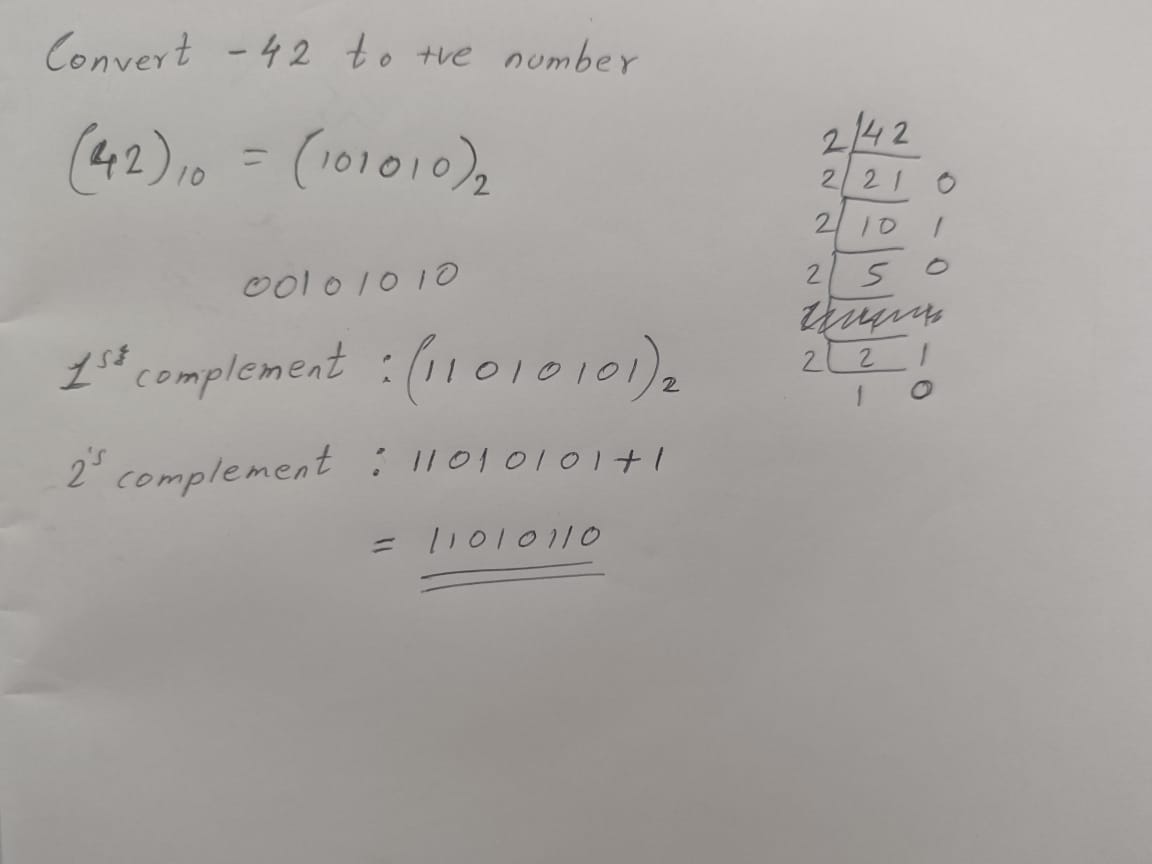 Convert -42 to +ve number
(42)₁₀ = (101010)₂
00101010
1st complement : (11010101)₂
2's complement : 11010101+1
= 11010110
2 42
2 21 0
2 10 1
2 5 0
2 2 1
1 0